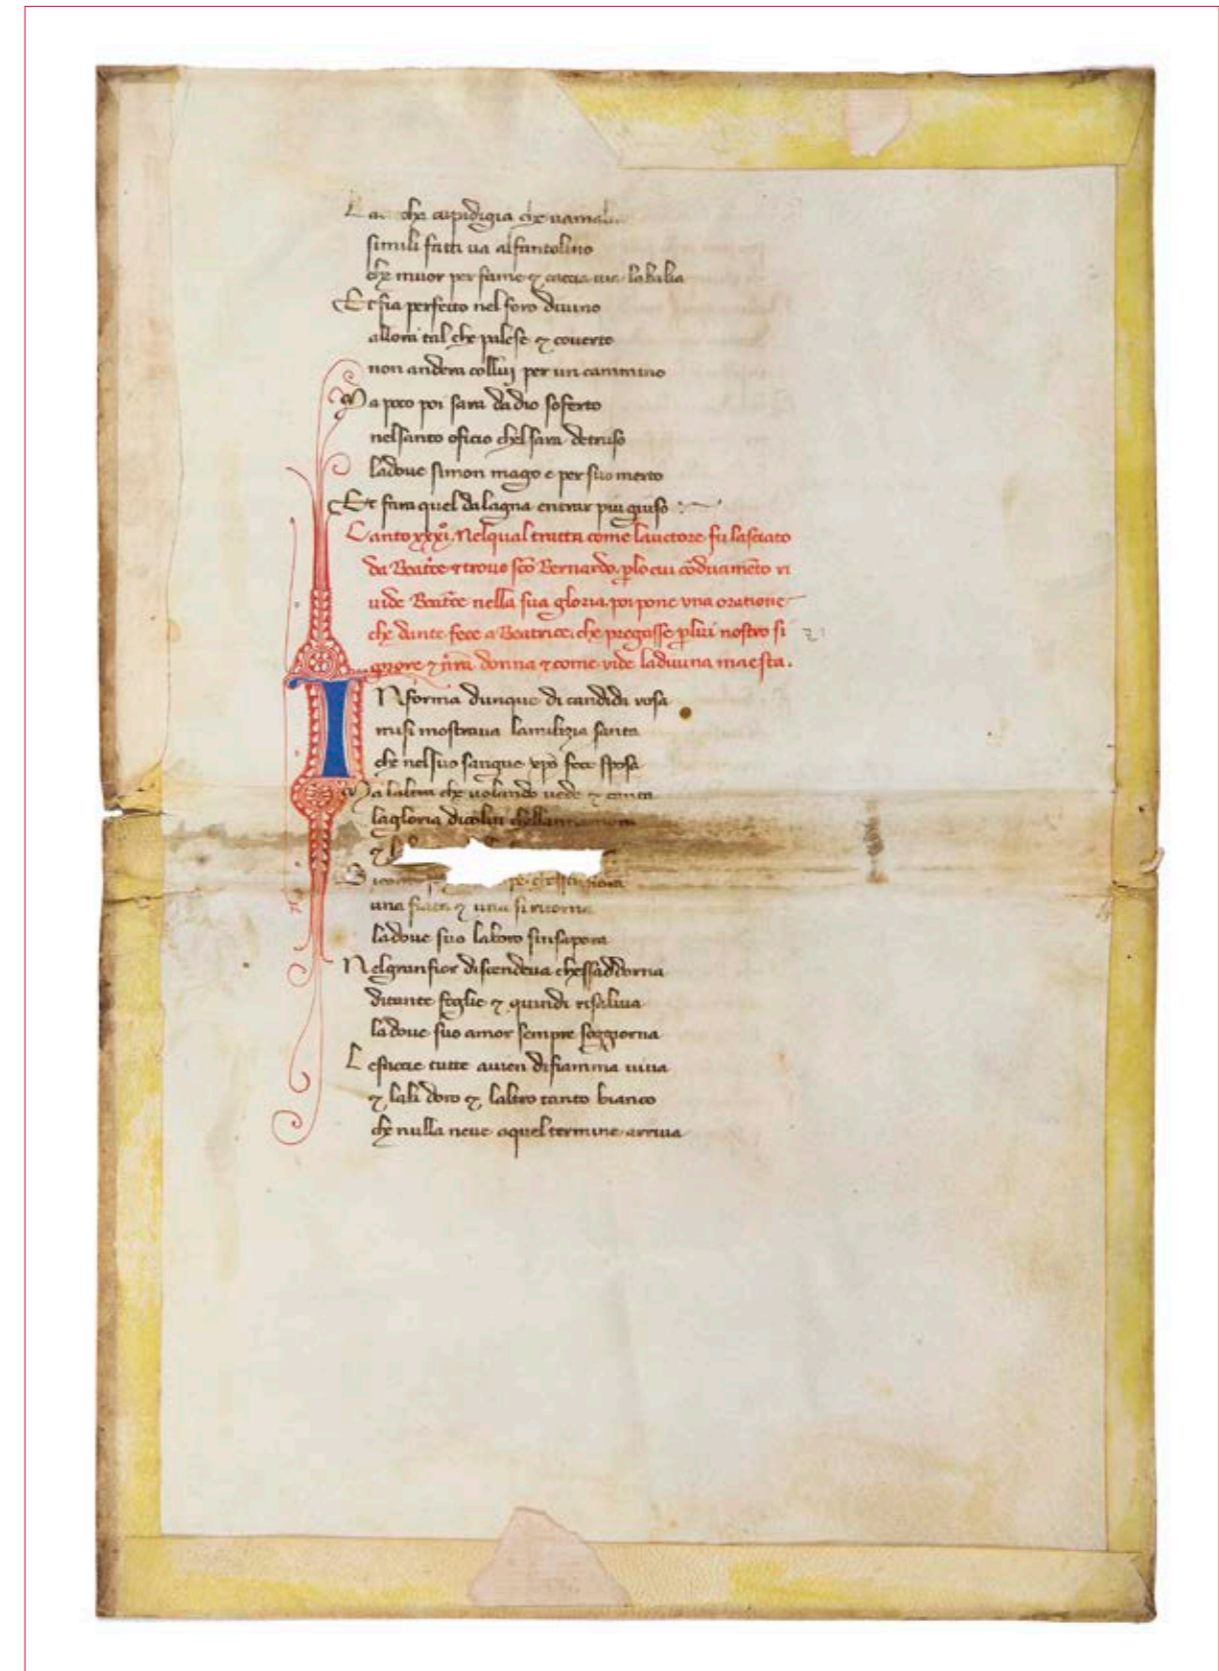 La che cupidigia che uama
simili fatti ua alfantolino
che muor per fame & caccia uia labalia
Et fia perfecto nel foro diuino
allora tal che palese & couerto
non andera collui per un cammino
Ma poco poi sara dadio soferto
nelsanto oficio chelsara detruso
ladoue simon mago e per suo merto
Et fara quel dalagna entrar piu giuso
Canto xxxi. Nelqual tratta come lauctore fu lasciato
da Beatce & trouo sco Bernardo. plo cui coduameto ri
uide Beatce nella sua gloria. poi pone una oratione
che dante fece a Beatrice. che pregasse plui nostro si
gnore & nra donna & come uide ladiuina maesta.
INforma dunque di candida rosa
misi mostraua lamilizia santa
che nelsuo sangue xpo fece sposa
Ma laltra che uolando uede & canta
lagloria dicolui
&
una fiata & una si ritorna
ladoue suo laboro sinsapora
Nelgranfior discendeua chessaddorna
ditante foglie & quindi risaliua
ladoue suo amor sempre soggiorna
Lefaccie tutte auien difiamma uiua
& lali doro & laltro tanto bianco
che nulla neue aquel termine arriua